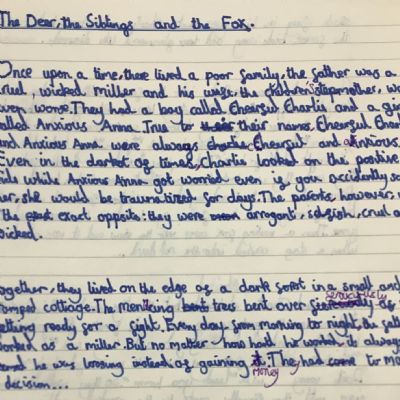 The Dear, the Siblings and the Fox.
Once upon a time, there lived a poor family, the father was a
cruel, wicked miller and his wife, the children's stepmother, was
even worse. They had a boy called Cheerful Charlie and a girl
called Anxious Anna. True to their names, Cheerful Charlie
and Anxious Anna were always Cheerful and anxious.
Even in the darkest of times, Charlie looked on the positive
side while Anxious Anna got worried even if you accidently
her, she would be traumatized for days. The parents, however,
the exact opposite: they were arrogant, selfish, cruel
wicked.
together, they lived on the edge of a dark forest in a small and
cottage. The trees bent over ferociously
getting ready for a fight. Every day, from morning to night, the father
worked as a miller. But no matter how hard he worked, it always
he was loosing instead of gaining money. They had come to
decision...